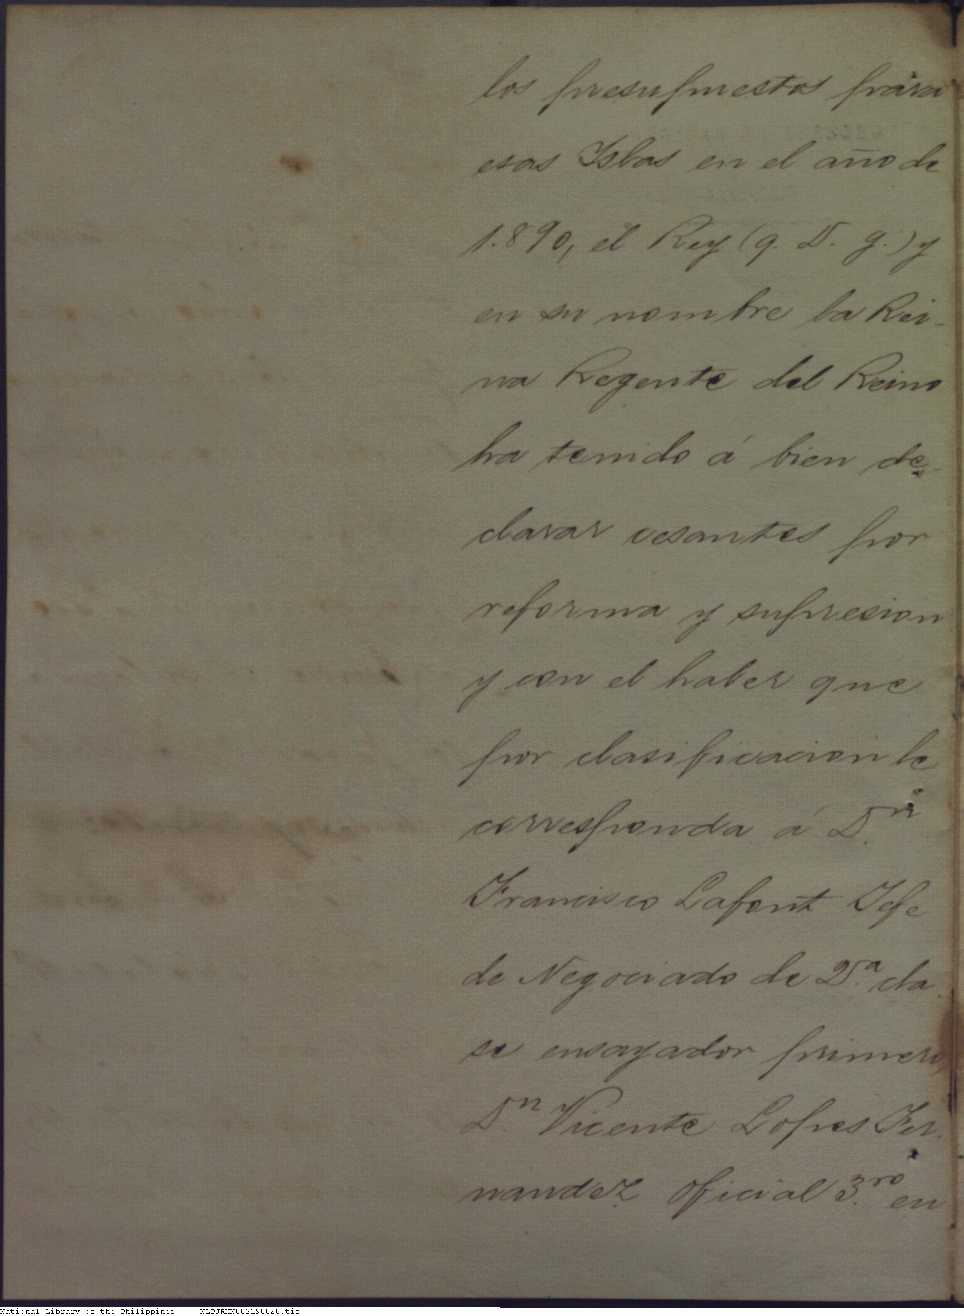 los presupuestos para
esas Islas en el año de
1.890, el Rey (q. D. g.) y
en su nombre la Rei-
na Regente del Reino
ha tenido á bien de-
clarar cesantes por
reforma y supresion
y con el haber que
por clasificacion le
corresponda á D.n
Francisco Lafont Jefe
de Negociado de 2.a cla
se ensayador primero
D.n Vicente Lopes Fer-
nandez oficial 3.ro en
National Library of the Philippines